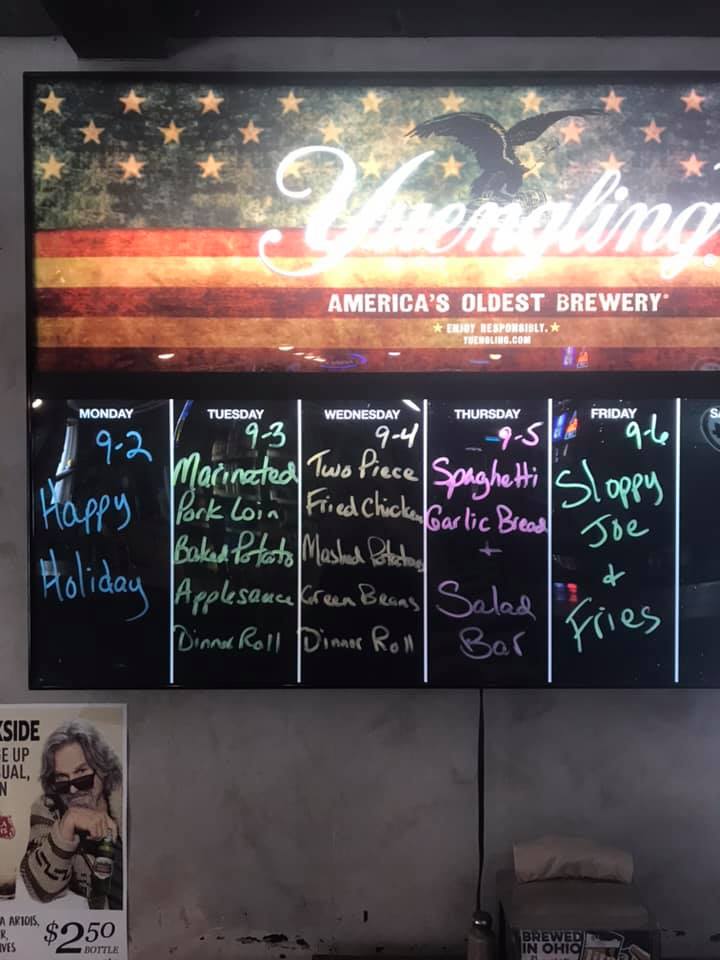 Yuengling
AMERICA'S OLDEST BREWERY
ENJOY RESPONSIBLY.
YUENGLING.COM
MONDAY
9-2
Happy
Holiday
TUESDAY
9-3
Marinated
Pork Loin
Baked Potato
Applesauce
Dinner Roll
WEDNESDAY
9-4
Two Piece
Fried Chicken
Mashed Potatoes
Green Beans
Dinner Roll
THURSDAY
9-5
Spaghetti
Garlic Bread
+
Salad
Bar
FRIDAY
9-6
Sloppy
Joe
&
Fries
SA
KSIDE
E UP
UAL,
N
A ARTOIS,
R,
IVES
$2.50
BOTTLE
BREWED
IN OHIO